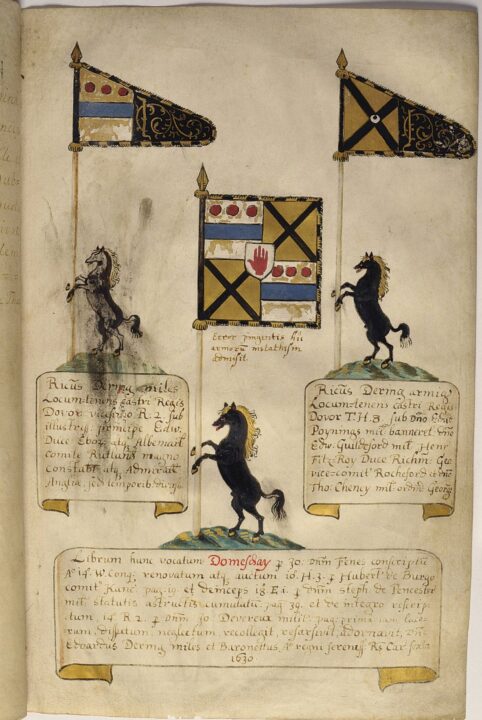 error pingentis hii
armorum metathesin
admisit
Ricūs Dering miles
Locumtenens castri Regis
Dovor vicesimo R. 2. sub
illustriss: principe Edw.
Duce Eboz: atq; Albemarl:
comite Rutland magno
Constabl: atq; Admirall:
Anglia
Ricūs Dering armig
Locumtenens Castri Regis
Dovor T. H. 8. sub dño Edw:
Poynings mil: banneret. dño
Edw. Guldeford mil. Henr
Fitz Roy Duce Richm: Geo
vicecomit: Rocheford et dño
Tho: Cheney mil: ordinis Georgij
Librum hunc vocatum Domeschay p Jo. Dnm Fines conscriptū
Aº 14. W. Conq: renovatum atq; auctum 10. H. 3. p Hubert. de Burgo
comit: Kanc: pag. 19. et deinceps 18. E. 1. p dnm Steph. de Pencester
mil: statutis cumulatū pag. 39. et de integro rescrip
tum, 14º R. 2. p dnm Jo. Devereux milit: pag: prima
dissutum, neglectum, recollegit, resarsivit, adornavit, Dns
Edoardus Dering miles et Baronettus, Aº regni sereniss. Rs Car: sexto
1630